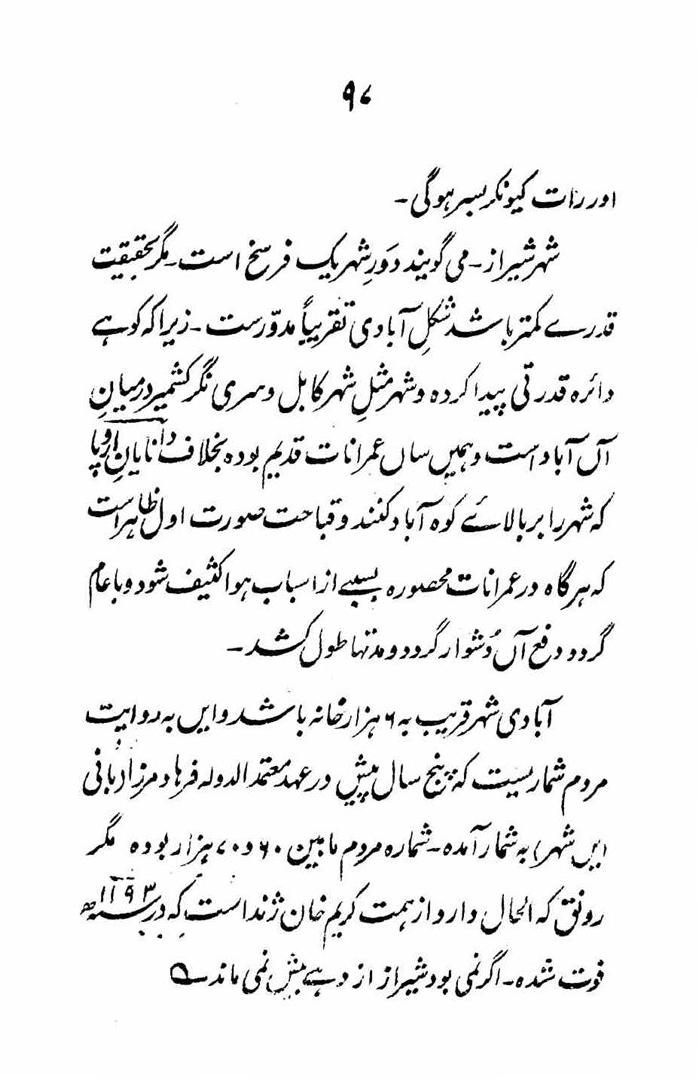 ۹۷
اور رات کیونکر بسر ہوگی۔
شہر شیراز۔ می گویند دَورِ شہر یک فرسخ است۔ مگر بحقیقت
قدرے کمتر باشد شکلِ آبادی تقریباً مدوّرست۔ زیرا کہ کوہے
دائرہ قدرتی پیدا کردہ و شہر مثلِ شہر کابل و سری نگر کشمیر درمیانِ
آں آباد است و ہمیں ساں عمرانات قدیم بودہ بخلاف دانایانِ اروپا
کہ شہر را بر بالائے کوہ آباد کنند و قباحت صورت اول ظاہر است
کہ ہرگاہ در عمرانات محصورہ بسببے از اسباب ہوا کثیف شود وبا عام
گردد دفع آں دُشوار گردد و مدتہا طول کشد۔
آبادی شہر قریب بہ ۶ ہزار خانہ باشد و ایں بہ روایت
مردم شماریست کہ پنج سال پیش در عہد معتمد الدولہ فرہاد مرزا بانی
ایں شہر بہ شمار آمدہ۔ شمارہ مردم مابین ۶۰ و ۷۰ ہزار بودہ مگر
رونق کہ الحال دارد از ہمت کریم خان ژند است کہ در سنہ ۱۱۹۳ھ
فوت شدہ۔ اگر نمی بود شیراز از دہے بیش نمی ماند ے